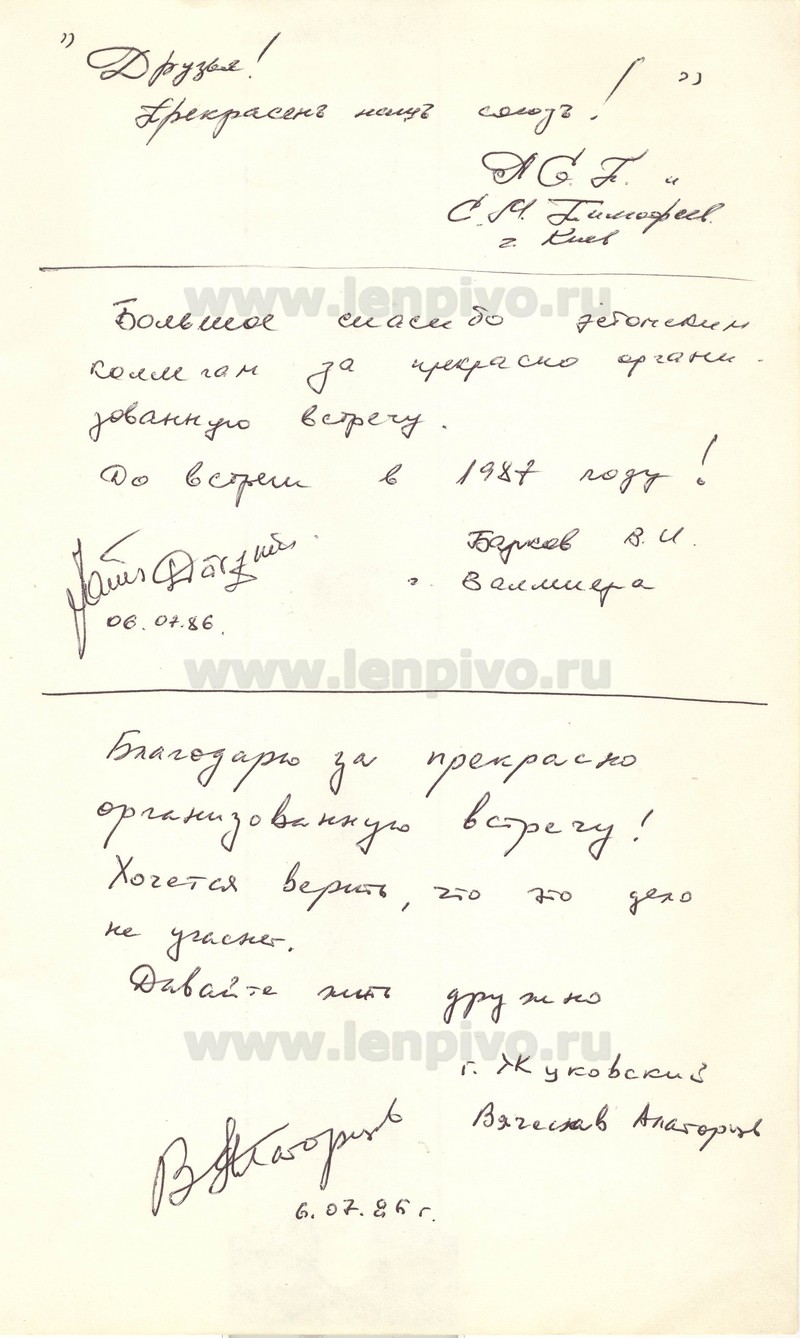 " Друзья!
Прекрасенъ нашъ союзъ! "
А.С.П. "
С.М. Тимофеев.
г. Киев
www.lenpivo.ru
Большое спасибо эстонским
коллегам за прекрасно органи-
зованную встречу.
До встречи в 1987 году!
Барков В.И.
г. Валмиера
06.07.86.
www.lenpivo.ru
Благодарю за прекрасно
организованную встречу!
Хочется верить, что это дело
не угаснет.
Давайте жить дружно
www.lenpivo.ru
г. Жуковский
Вячеслав Алаторцев
В Алаторцев
6.07.86 г.